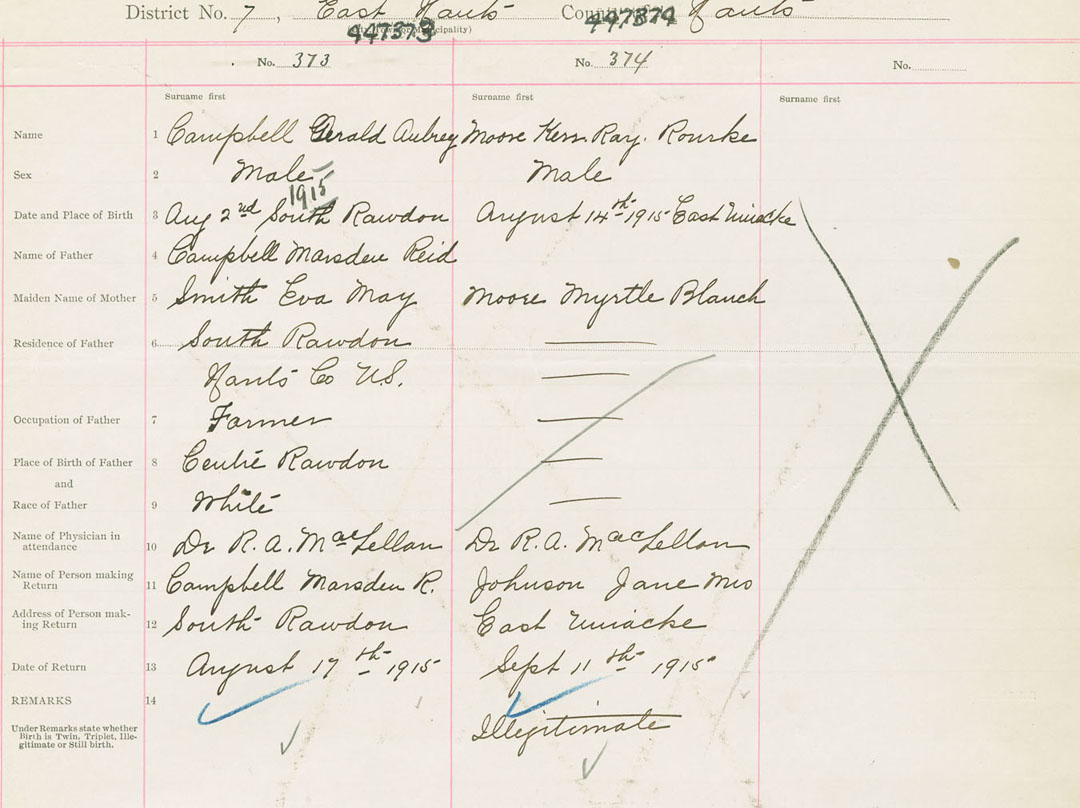 District No. 7, East Hants County Hants
(City, Town or Municipality)
447373 447374
No. 373 No. 374 No.
Surname first Surname first Surname first
Name 1 Campbell Gerald Aubrey Moore Kerr Ray. Rourke
Sex 2 Male Male
1915
Date and Place of Birth 3 Aug 2nd South Rawdon August 14th 1915 East Uniacke
Name of Father 4 Campbell Marsden Reid
Maiden Name of Mother 5 Smith Eva May Moore Myrtle Blanch
Residence of Father 6 South Rawdon
Hants Co N.S.
Occupation of Father 7 Farmer
Place of Birth of Father 8 Centre Rawdon
and
Race of Father 9 White
Name of Physician in
attendance 10 Dr R. A. MacLellan Dr R. A. MacLellan
Name of Person making
Return 11 Campbell Marsden R. Johnson Jane Mrs
Address of Person mak-
ing Return 12 South Rawdon East Uniacke
Date of Return 13 August 17th 1915 Sept 11th 1915
REMARKS 14
Under Remarks state whether
Birth is Twin, Triplet, Ille-
gitimate or Still birth.
Illegitimate